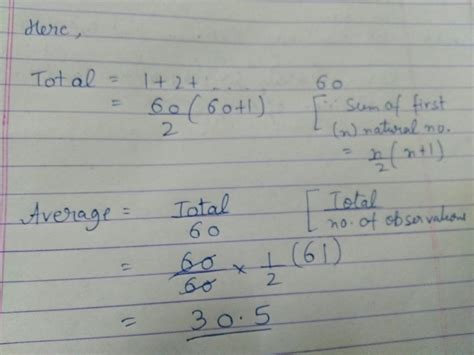 Here,
Total = 1+2+ ........ 60
= 60/2 (60+1) [∵ Sum of first
(n) natural no.
= n/2 (n+1)
Average = Total/60 [Total/no. of observations
= 60/60 × 1/2 (61)
= 30.5